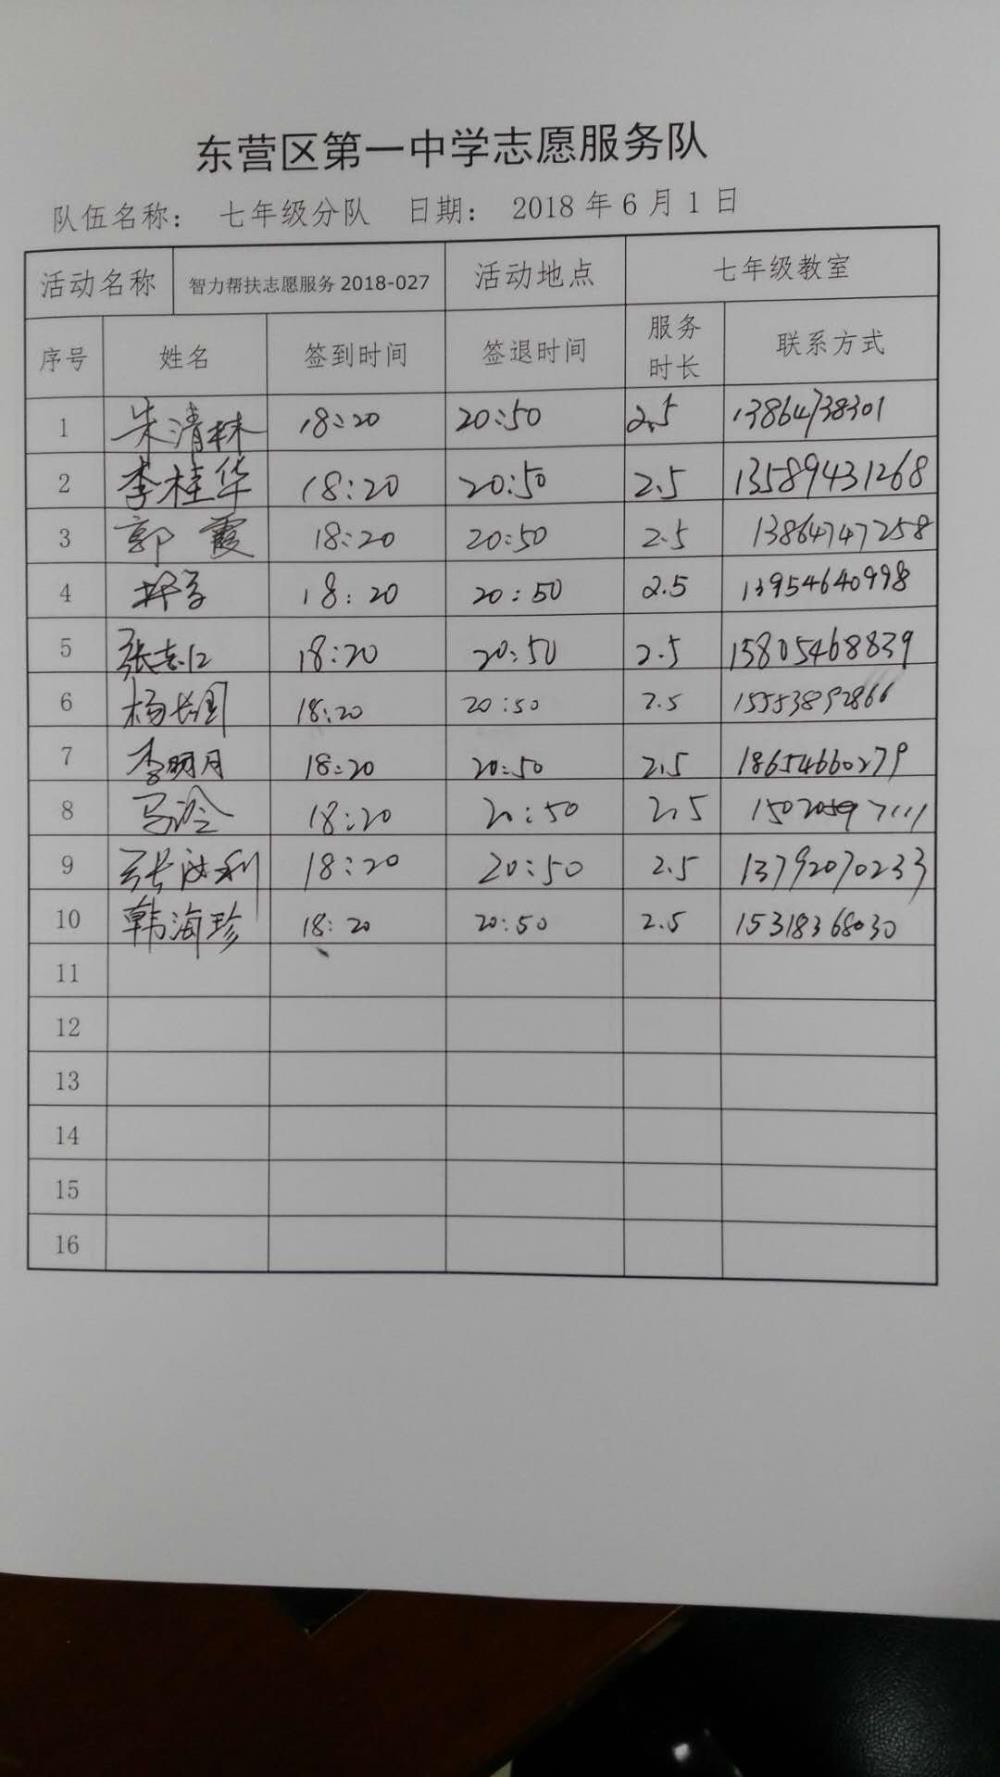 东营区第一中学志愿服务队
队伍名称： 七年级分队 日期： 2018 年 6 月 1 日
活动名称 智力帮扶志愿服务 2018-027 活动地点 七年级教室
序号 姓名 签到时间 签退时间 服务时长 联系方式
1 朱清林 18:20 20:50 2.5 13864738301
2 李桂华 18:20 20:50 2.5 13589431268
3 郭霞 18:20 20:50 2.5 13864747258
4 18:20 20:50 2.5 13954640998
5 张志仁 18:20 20:50 2.5 15805468839
6 杨长国 18:20 20:50 2.5 15553892866
7 李明月 18:20 20:50 2.5 18654660279
8 马 18:20 20:50 2.5
9 张胜利 18:20 20:50 2.5 13792070233
10 韩海珍 18:20 20:50 2.5 15318368030
11
12
13
14
15
16